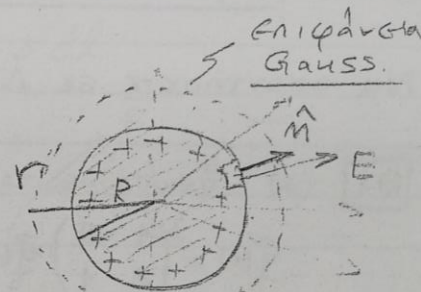 Επιφάνεια
Gauss.
n̂
E
r
R
+ + + + + + + + + + + +